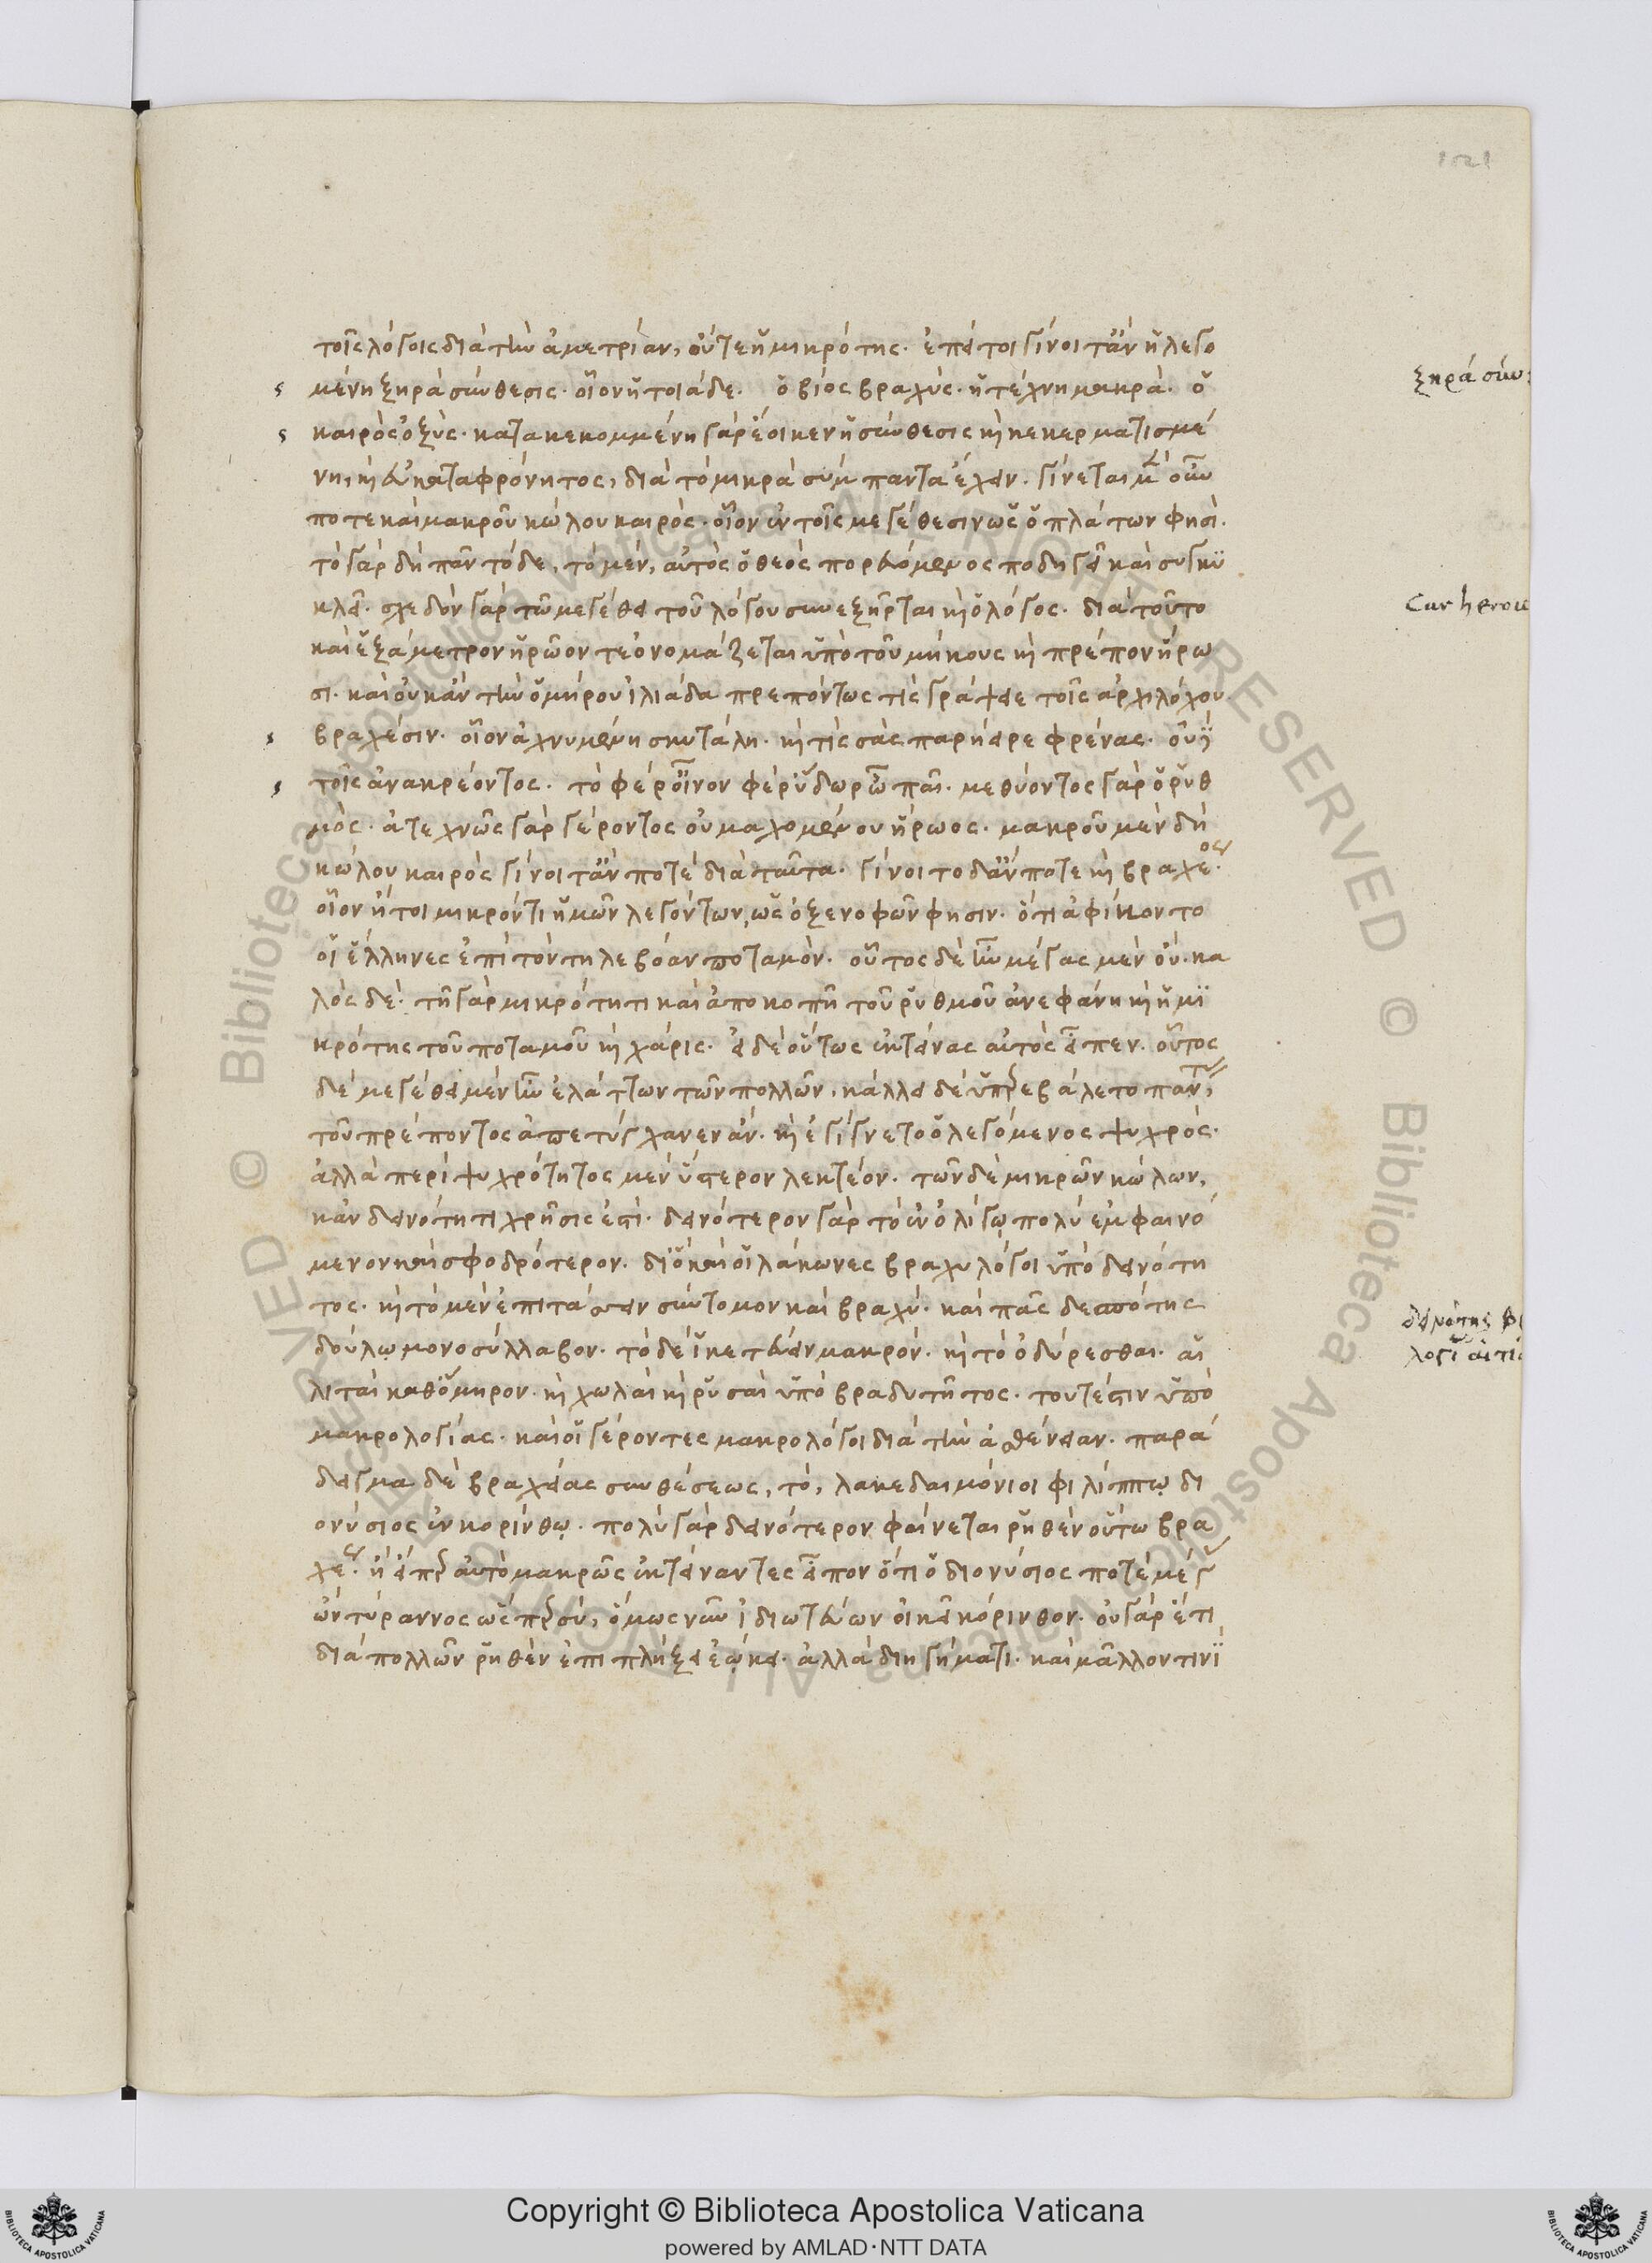 τοῖς λόγοις διὰ τὴν ἀμετρίαν, οὔτε ἡ μικρότης. ἐπεί τοι γίνοιτ' ἂν ἡ λεγο
μένη ξηρὰ σύνθεσις. οἷον ἡ τοιάδε. ὁ βίος βραχύς. ἡ τέχνη μακρὰ. ὁ
ξηρά σύν
καιρὸς ὀξὺς. κατακεκομμένη γὰρ ἔοικεν ἡ σύνθεσις καὶ κεκερματισμέ
νη, καὶ εὐκαταφρόνητος, διὰ τὸ μικρὰ σύμπαντα ἔχειν. γίνεται μὲν οὖν
ποτε καὶ μακροῦ κώλου καιρός. οἷον ἐν τοῖς μεγέθεσιν ὡς ὁ πλάτων φησὶ.
τὸ γὰρ δὴ πᾶν τόδε, τὸ μὲν, αὐτὸς ὁ θεὸς πορευόμενος ποδηγεῖ καὶ συγκυ
κλεῖ. σχεδὸν γὰρ τῶ μεγέθει τοῦ λόγου συνεξῆρται καὶ ὁ λόγος. διὰ τοῦτο
Cur herou
καὶ ἑξάμετρον ἡρῶον τε ὀνομάζεται ὑπὸ τοῦ μήκους καὶ πρέπον ἥρω
σι. καὶ οὐκ ἂν τὴν ὁμήρου ἰλιάδα πρεπόντως τίς γράψειε τοῖς ἀρχιλόχου
βραχέσιν. οἷον ἀχνυμένη σκυτάλη. καὶ τίς σὰς παρήειρε φρένας. οὐδὲ
τοῖς ἀνακρέοντος. τὸ φέρ' οἶνον φέρ' ὕδωρ ὦ παῖ. μεθύοντος γὰρ ὁ ῥυθ
μὸς. ἀτεχνῶς γὰρ γέροντος οὐ μαχομένου ἥρωος. μακροῦ μὲν δὴ
κώλου καιρὸς γίνοιτ' ἂν ποτὲ διὰ ταῦτα. γίνοιτο δ' ἄν ποτε καὶ βραχέος.
οἷον ἤτοι μικρόν τι ἡμῶν λεγόντων, ὡς ὁ ξενοφῶν φησιν. ὅτι ἀφίκοντο
οἱ ἕλληνες ἐπὶ τὸν τηλεβόαν ποταμόν. οὗτος δὲ ἦν μέγας μὲν οὔ. κα
λὸς δὲ. τῆ γὰρ μικρότητι καὶ ἀποκοπῆ τοῦ ῥυθμοῦ ἀνεφάνη καὶ ἡ μι
κρότης τοῦ ποταμοῦ καὶ χάρις. εἰ δὲ οὕτως ἐκτείνας αὐτὸς εἶπεν. οὗτος
δὲ μεγέθει μὲν ἦν ἐλάττων τῶν πολλῶν. κάλλει δὲ ὑπερεβάλετο πάντας,
τοῦ πρέποντος ἀπετύγχανεν ἄν. καὶ ἐγίγνετο ὁ λεγόμενος ψυχρός.
ἀλλὰ περὶ ψυχρότητος μὲν ὕστερον λεκτέον. τῶν δὲ μικρῶν κώλων,
κἀν δεινότητι χρῆσις ἐστὶ. δεινότερον γὰρ τὸ ἐν ὀλίγῳ πολὺ ἐμφαινό
μενον καὶ σφοδρότερον. διὸ καὶ οἱ λάκωνες βραχυλόγοι ὑπὸ δεινότη
τος. καὶ τὸ μὲν ἐπιτάσσειν σύντομον καὶ βραχύ. καὶ πᾶς δεσπότης
δεινότης
δούλῳ μονοσύλλαβον. τὸ δὲ ἱκετεύειν μακρόν. καὶ τὸ ὀδύρεσθαι. αἱ
λιταὶ καθ' ὅμηρον. καὶ χωλαὶ καὶ ῥυσαὶ ὑπὸ βραδυτῆτος. τουτέστιν ὑπὸ
μακρολογίας. καὶ οἱ γέροντες μακρολόγοι διὰ τὴν ἀσθένειαν. παρά
δειγμα δὲ βραχείας συνθέσεως, τό, λακεδαιμόνιοι φιλίππῳ δι
ονύσιος ἐν κορίνθῳ. πολὺ γὰρ δεινότερον φαίνεται ῥηθὲν οὕτω βρα
χέως. ἢ εἴπερ αὐτὸ μακρῶς ἐκτείναντες εἶπον ὅτι ὁ διονύσιος ποτὲ μέγας
ὢν τύραννος ὥσπερ σὺ, ὅμως νῦν ἰδιωτεύων οἰκεῖ κόρινθον. οὐ γὰρ ἔτι
διὰ πολλῶν ῥηθὲν ἐπιπλήξει ἐῴκει. ἀλλὰ διηγήματι. καὶ μᾶλλον τινὶ
© Biblioteca Apostolica Vaticana ALL RIGHTS RESERVED
Copyright © Biblioteca Apostolica Vaticana
powered by AMLAD·NTT DATA
BIBLIOTECA APOSTOLICA VATICANA
BIBLIOTECA APOSTOLICA VATICANA